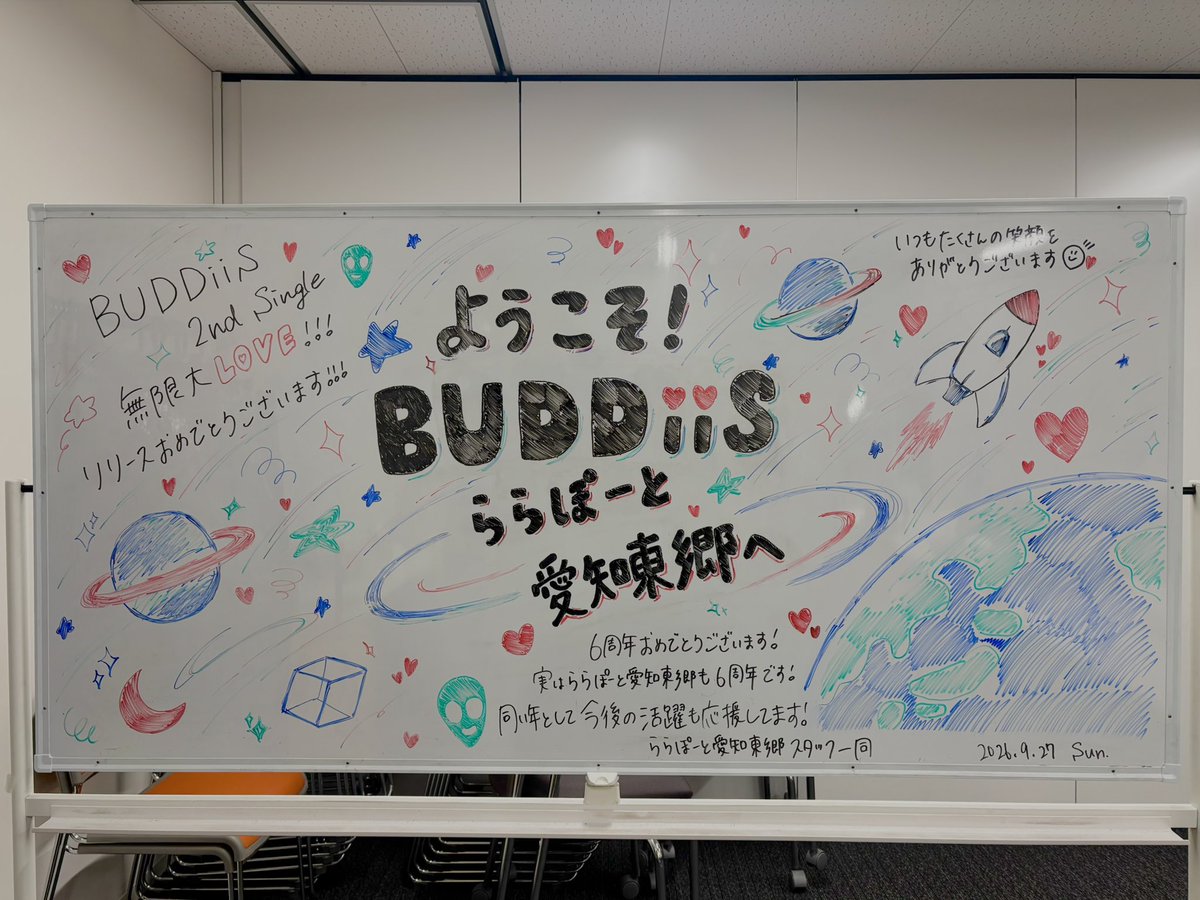 BUDDiiS
2nd Single
無限大LOVE!!!
リリースおめでとうございます!!!
ようこそ!
BUDDiiS
ららぽーと
愛知東郷へ
いつもたくさんの笑顔を
ありがとうございます
6周年おめでとうございます!
実はららぽーと愛知東郷も6周年です!
同い年として今後の活躍も応援してます!
ららぽーと愛知東郷スタッフ一同
2026.9.27 Sun.